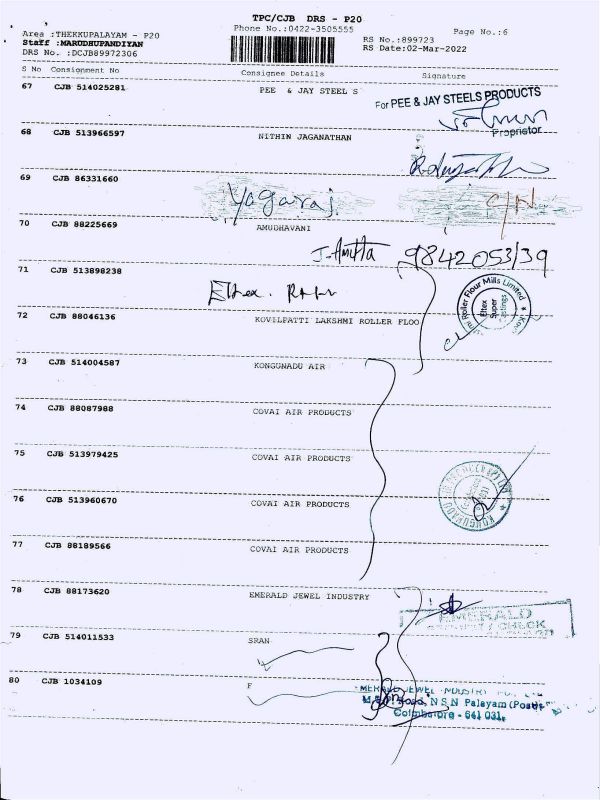 TPC/CJB DRS - P20
Area :THEKKUPALAYAM - P20 Phone No.:0422-3505555 Page No.:6
Staff :MARUDHUPANDIYAN RS No.:899723
DRS No. :DCJB89972306 RS Date:02-Mar-2022
S No Consignment No Consignee Details Signature
67 CJB 514025281 PEE & JAY STEEL S
For PEE & JAY STEELS PRODUCTS
Proprietor
68 CJB 513966597 NITHIN JAGANATHAN
69 CJB 86331660
Yogaraj C/N
70 CJB 88225669 AMUDHAVANI
J. Amitta 9842053139
71 CJB 513898238
Eltex.
Roller Flour Mills Limited
Eltex
Super
Castings
72 CJB 88046136 KOVILPATTI LAKSHMI ROLLER FLOO
73 CJB 514004587 KONGUNADU AIR
74 CJB 88087988 COVAI AIR PRODUCTS
75 CJB 513979425 COVAI AIR PRODUCTS
76 CJB 513960670 COVAI AIR PRODUCTS
KONGUNADU
77 CJB 88189566 COVAI AIR PRODUCTS
78 CJB 88173620 EMERALD JEWEL INDUSTRY
EMERALD
SECURITY CHECK
79 CJB 514011533 SRAN
80 CJB 1034109 F
MERALD JEWEL INDUSTRY
Road, N S N Palayam (Post)
Coimbatore - 641 031.